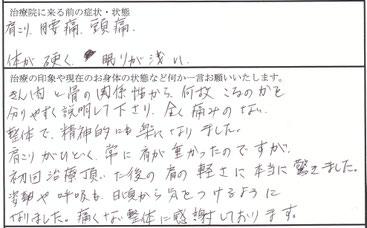 治療院に来る前の症状・状態
肩こり、腰痛、頭痛、
体が硬く、眠りが浅い。
治療の印象や現在のお身体の状態など何か一言お願いいたします。
きん肉と骨の関係性から、何故こるのかを
分りやすく説明して下さり、全く痛みのない
整体で、精神的にも楽になりました。
肩こりがひどく、常に肩が重かったのですが、
初回治療頂いた後の肩の軽さに本当に驚きました。
姿勢や呼吸も、日頃から気をつけるように
なりました。痛くない整体に感謝しております。